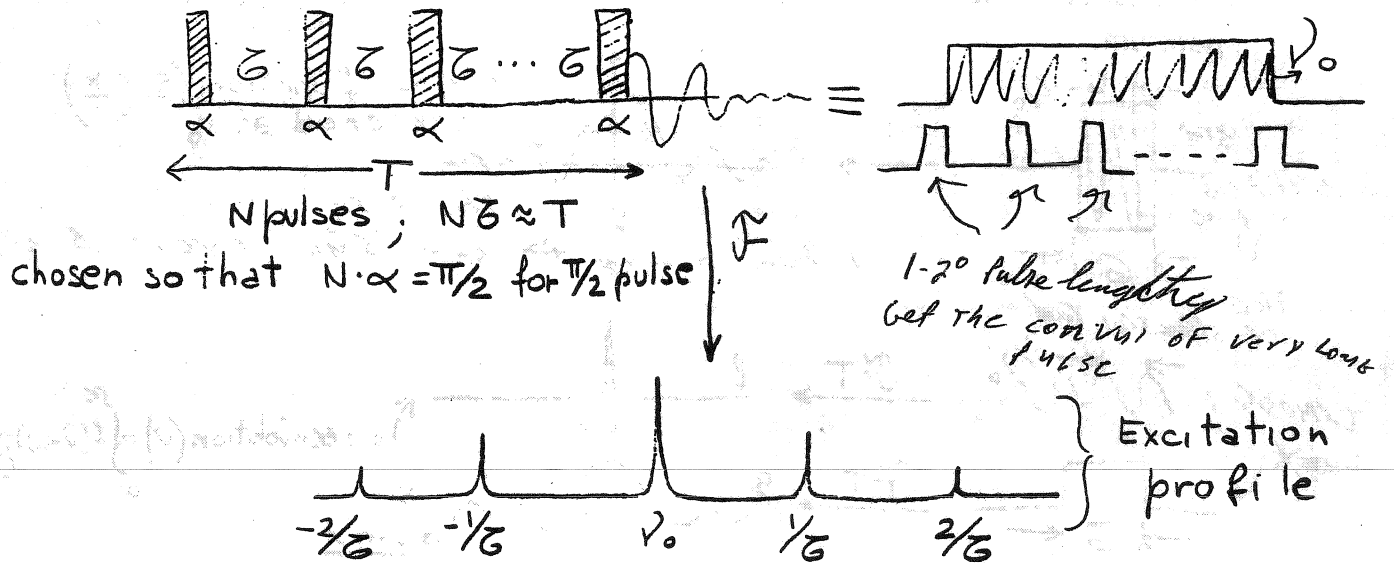 τ τ τ ... τ
α α α α
≡
ν₀
T
N pulses ; Nτ ≈ T
chosen so that N·α = π/2 for π/2 pulse
F
1-2° Pulse length
Get the of very long
pulse
Excitation
profile
-2/τ -1/τ ν₀ 1/τ 2/τ